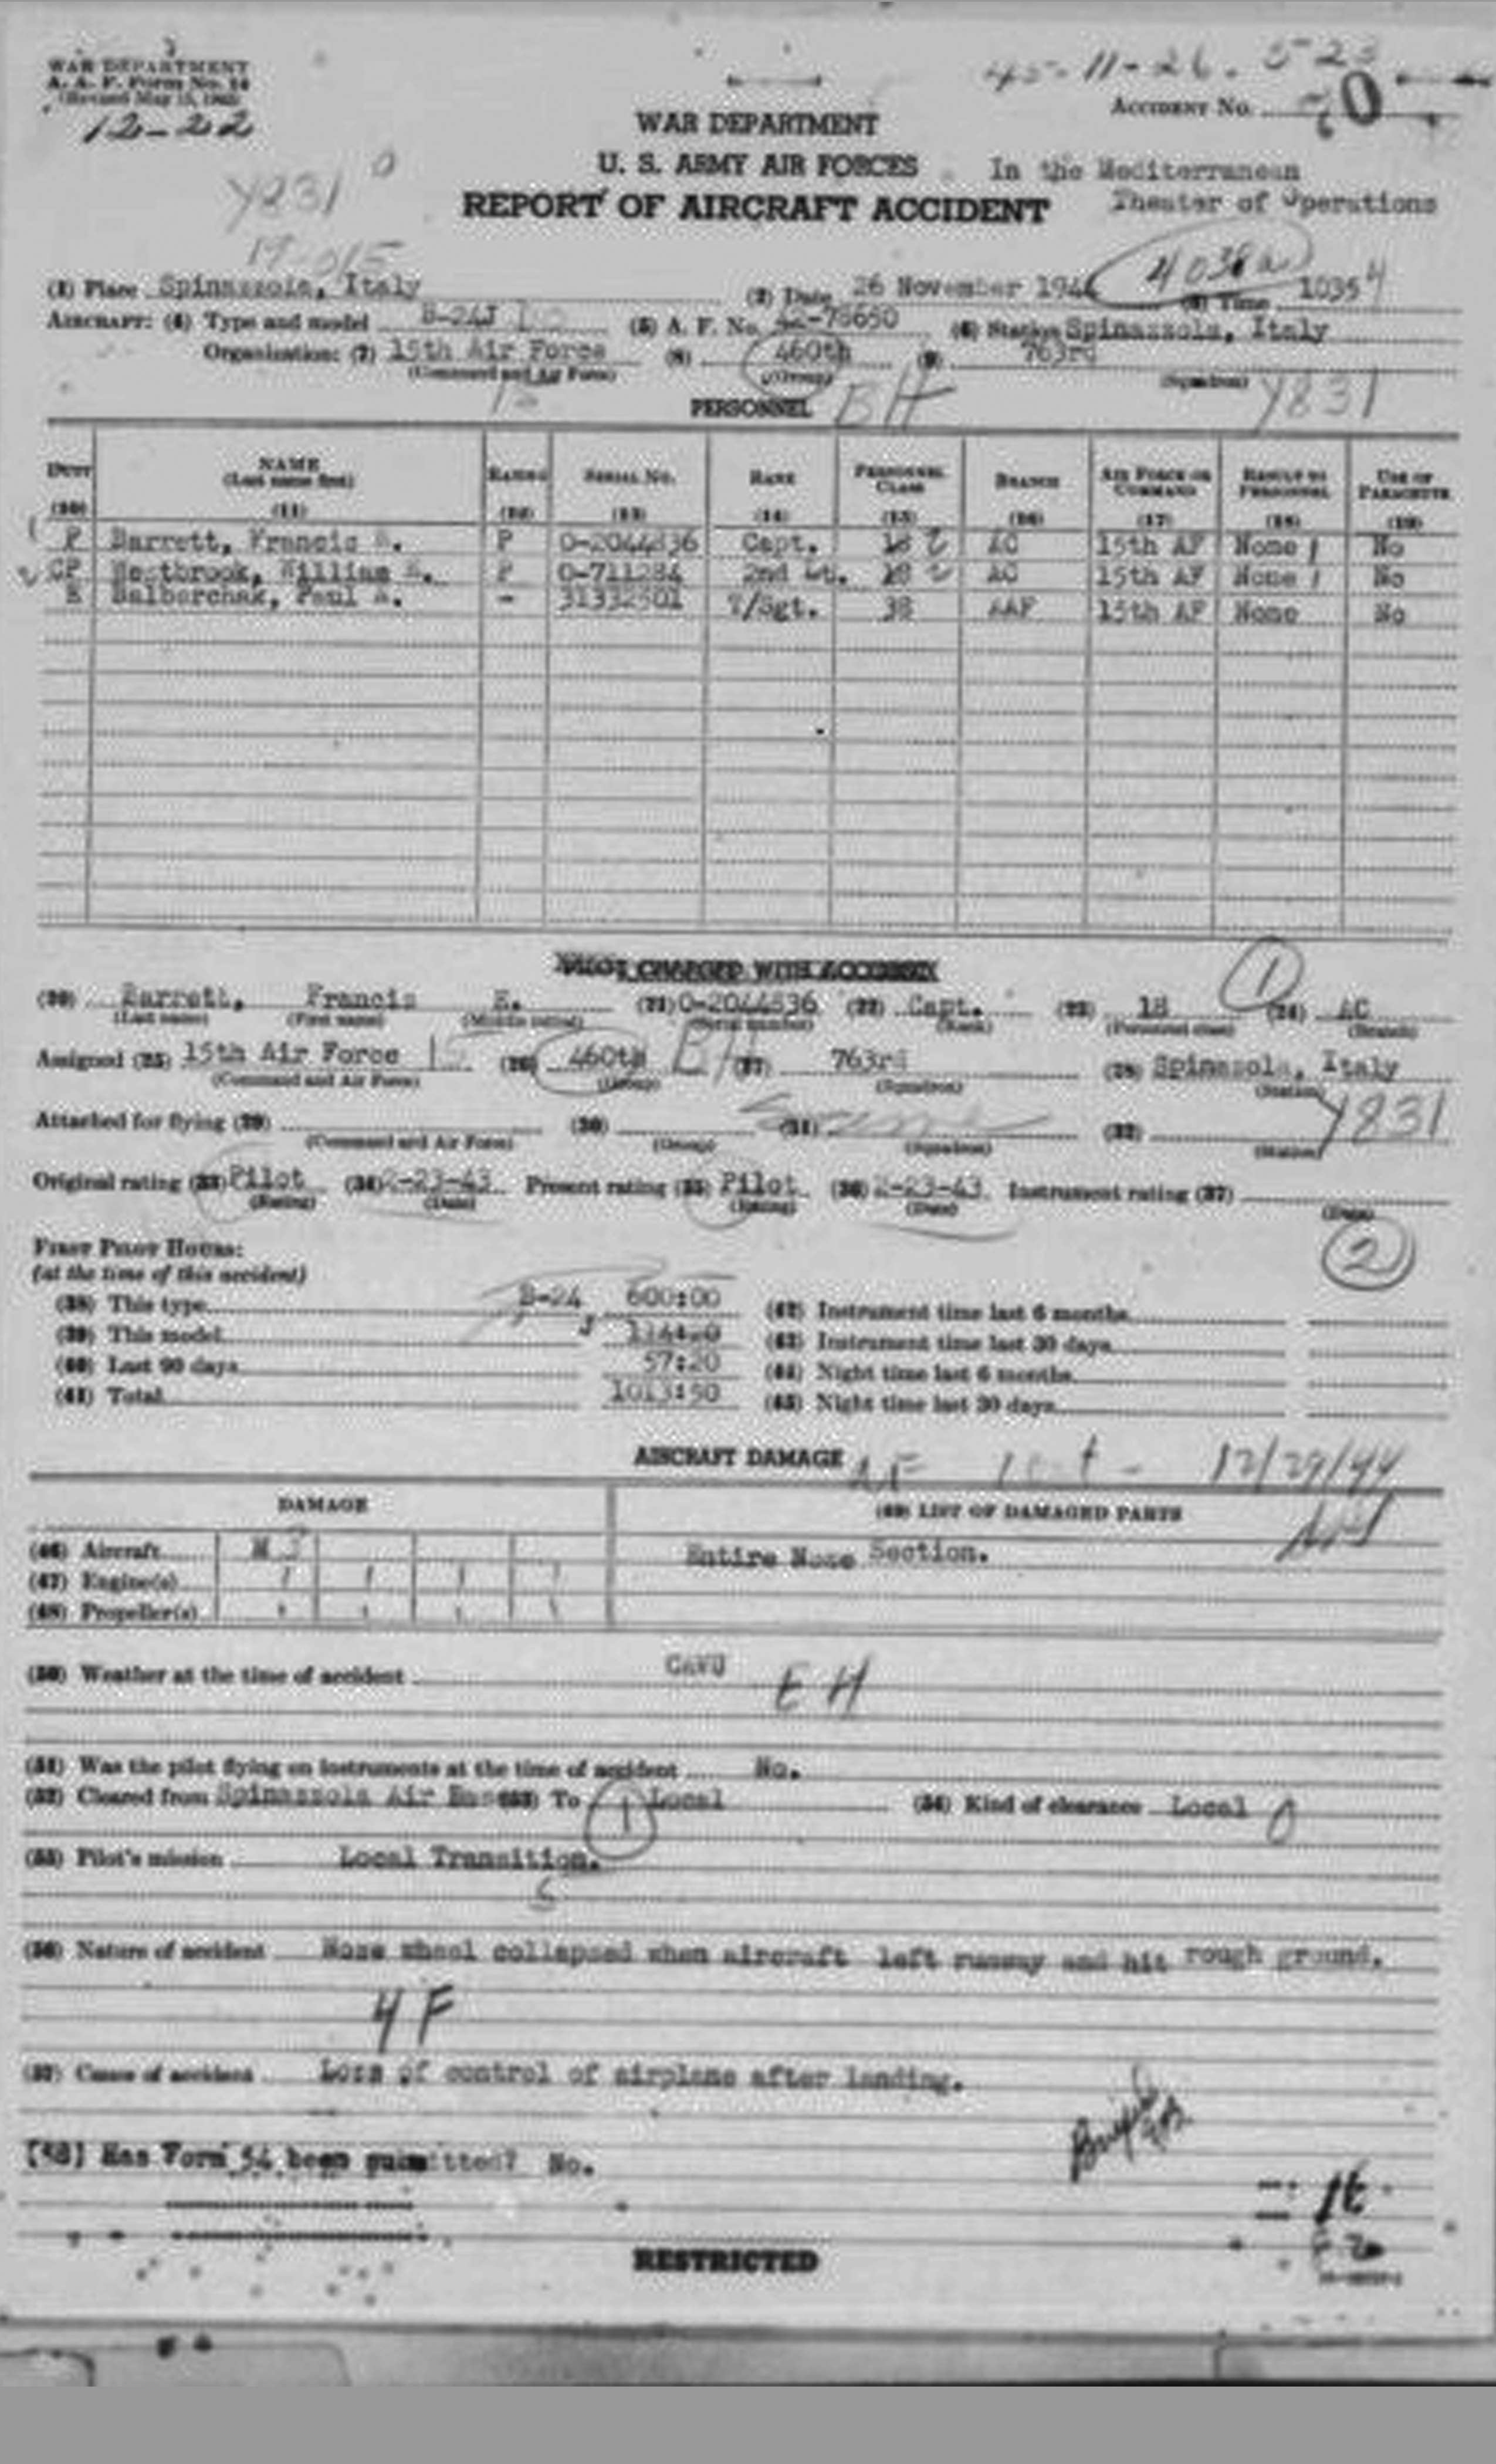 WAR DEPARTMENT
A. A. F. Form No. 14
(Revised May 15, 1942)
12-22
45-11-26. 523
ACCIDENT No.
WAR DEPARTMENT
U. S. ARMY AIR FORCES
In the Mediterranean
Theater of Operations
REPORT OF AIRCRAFT ACCIDENT
Y831 0
(1) Place Spinazzola, Italy (2) Date 26 November 1944 (3) Time 1035
AIRCRAFT: (4) Type and model B-24J (5) A. F. No. 42-78650 (6) Station Spinazzola, Italy
Organization: (7) 15th Air Force (8) 460th (9) 763rd
(Command and Air Force) (Group) (Squadron)
PERSONNEL BH Y831
DUTY NAME (Last name first) RATING SERIAL NO. RANK PERSONNEL CLASS BRANCH AIR FORCE OR COMMAND RESULT TO PERSONNEL USE OF PARACHUTE
(10) (11) (12) (13) (14) (15) (16) (17) (18) (19)
P Barrett, Francis P 0-2044836 Capt. 18 AC 15th AF None No
CP Westbrook, William P 0-711284 2nd Lt. 18 AC 15th AF None No
E Balberchak, Paul A. - 31332501 T/Sgt. 38 AAF 15th AF None No
PILOT CHARGED WITH ACCIDENT
(20) Barrett, Francis (21) 0-2044836 (22) Capt. (23) 18 (24) AC
(Last name) (First name) (Middle initial) (Serial number) (Rank) (Personnel class) (Branch)
1
Assigned (25) 15th Air Force (26) 460th BH (27) 763rd (28) Spinazzola, Italy
(Command and Air Force) (Group) (Squadron) (Station)
Attached for flying (29) (30) (31) (32) Y831
(Command and Air Force) (Group) (Squadron) (Station)
Original rating (33) Pilot (34) 2-23-43 Present rating (35) Pilot (36) 2-23-43 Instrument rating (37)
(Rating) (Date) (Rating) (Date) (Date)
2
FIRST PILOT HOURS:
(at the time of this accident)
(38) This type B-24 600:00 (42) Instrument time last 6 months
(39) This model J (43) Instrument time last 30 days
(40) Last 90 days 57:20 (44) Night time last 6 months
(41) Total 1013:50 (45) Night time last 30 days
AIRCRAFT DAMAGE 12/29/44
DAMAGE (49) LIST OF DAMAGED PARTS
(46) Aircraft M 3 Entire Nose Section.
(47) Engine(s)
(48) Propeller(s)
(50) Weather at the time of accident CAVU EH
(51) Was the pilot flying on instruments at the time of accident No.
(52) Cleared from Spinazzola Air Base (53) To Local (54) Kind of clearance Local 0
1
(55) Pilot's mission Local Transition.
5
(56) Nature of accident Nose wheel collapsed when aircraft left runway and hit rough ground.
4F
(57) Cause of accident Loss of control of airplane after landing.
[58] Has Form 54 been submitted? No.
RESTRICTED